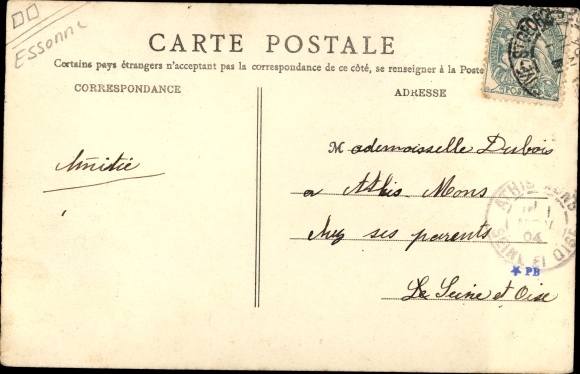 Essonne
CARTE POSTALE
Certains pays étrangers n'acceptant pas la correspondance de ce côté, se renseigner à la Poste
CORRESPONDANCE
ADRESSE
Mademoisselle Dubois
Amitié
a Athis Mons
chez ses parents
Le Seine et Oise
ATHIS MONS
04
SEINE ET OISE
PB
POSTES